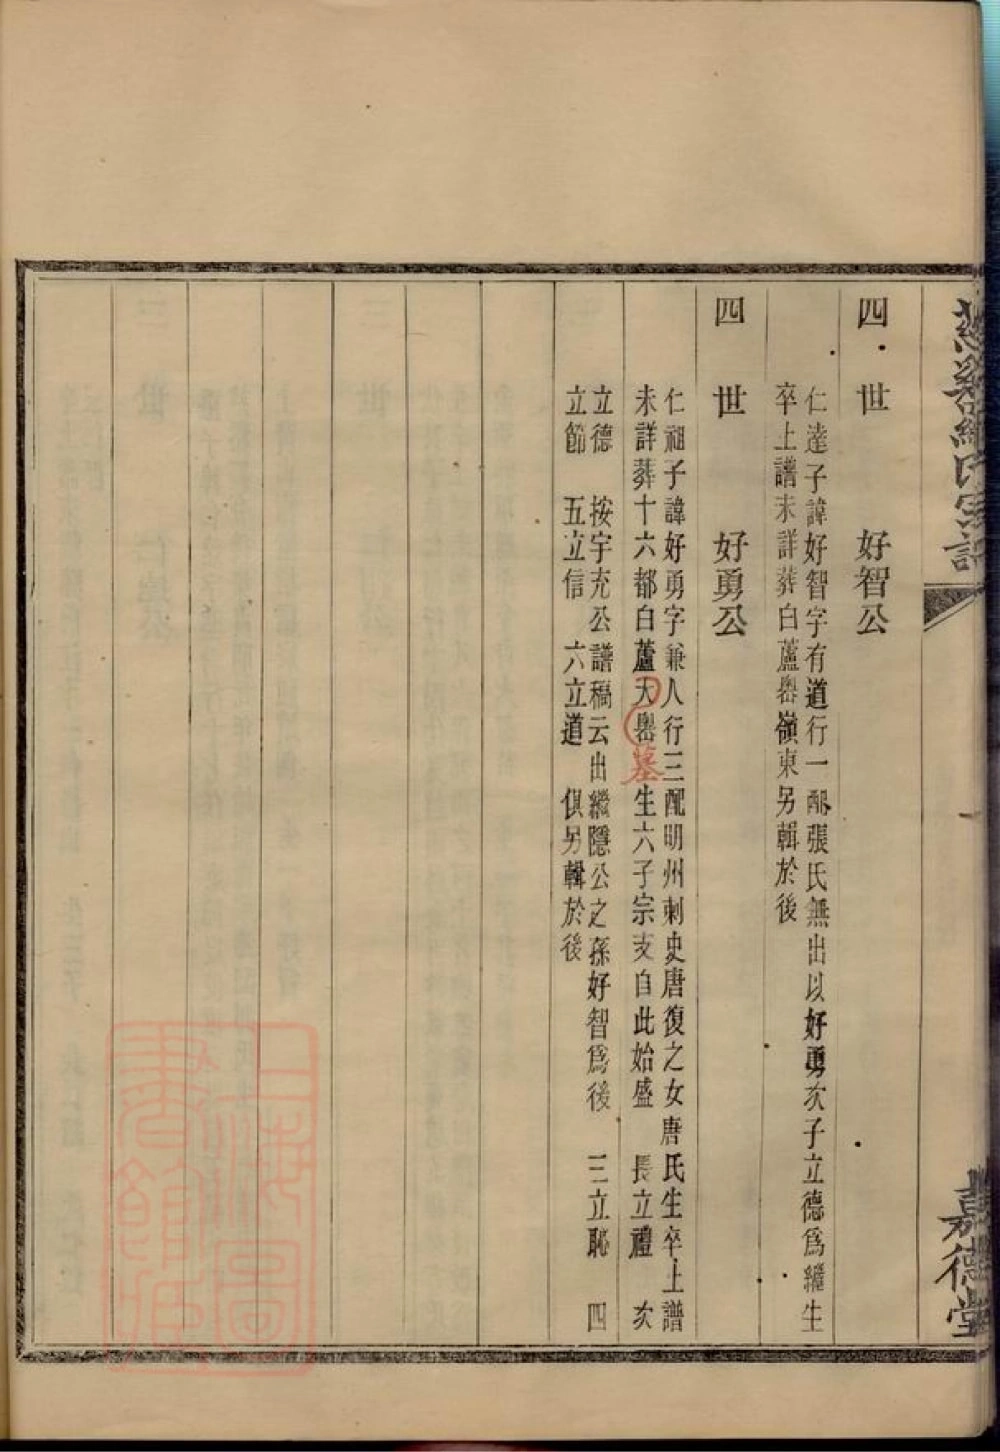 慈谿羅氏宗譜
嘉德堂
四世 好智公
仁達子諱好智字有道行一配張氏無出以好勇次子立德爲繼生
卒上譜未詳葬白蘆嶴嶺東另輯於後
四世 好勇公
仁祖子諱好勇字兼人行三配明州刺史唐復之女唐氏生卒上譜
未詳葬十六都白蘆大嶴墓生六子宗支自此始盛 長立禮 次
立德 按宇充公譜稿云出繼隱公之孫好智爲後 三立恥 四
立節 五立信 六立道 俱另輯於後
上海圖書館藏